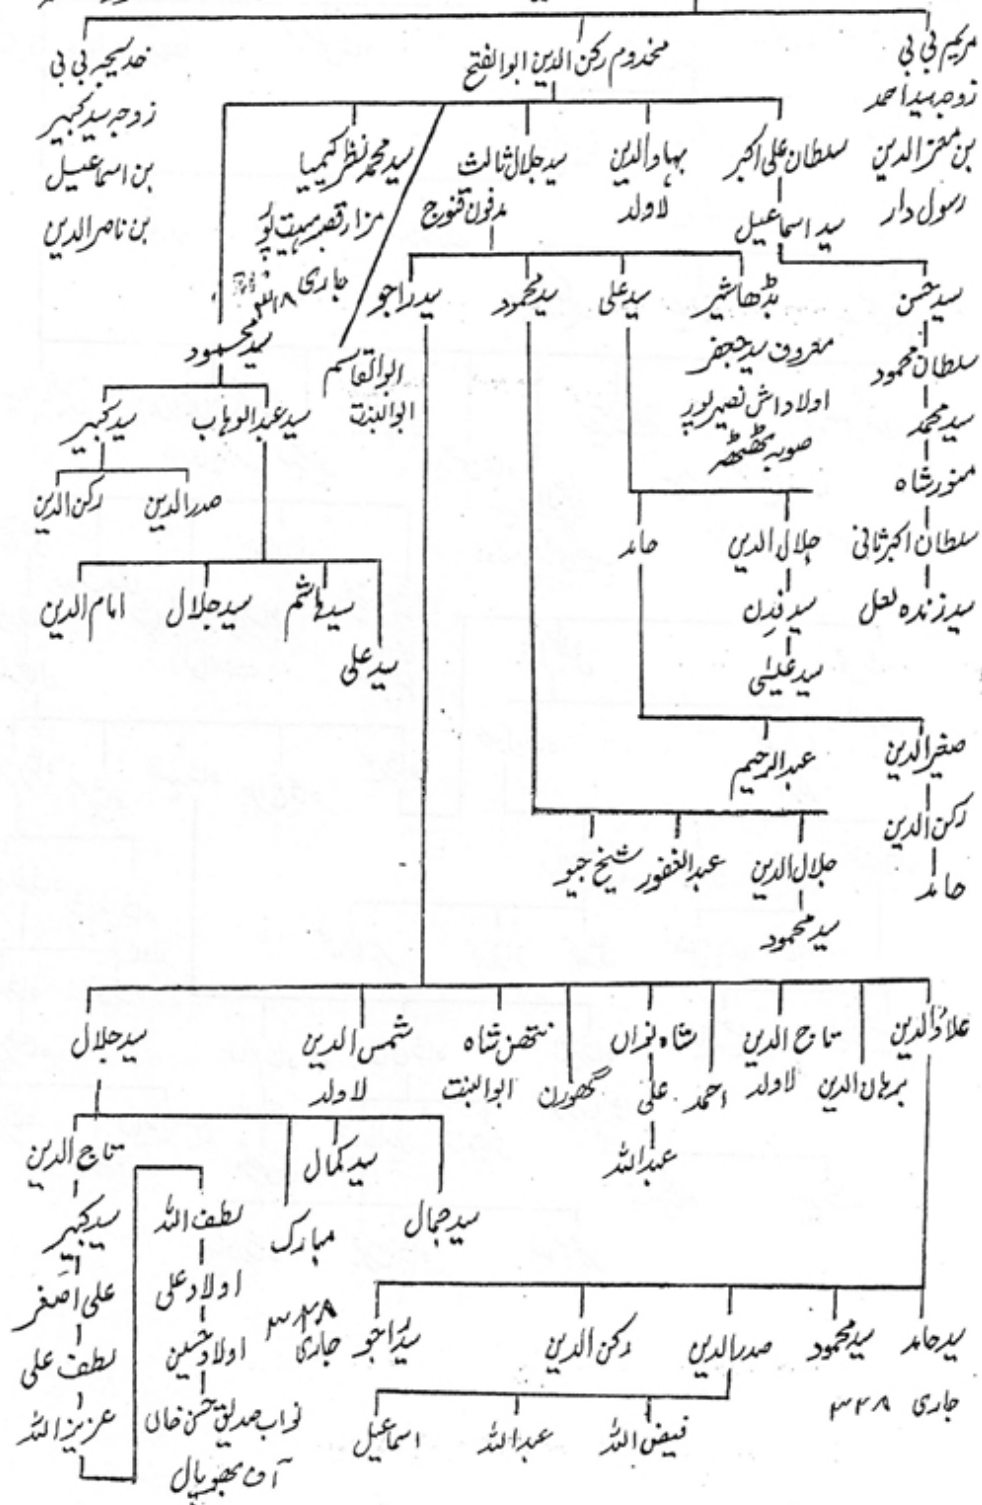 مریم بی بی
زوجہ سید احمد
بن معز الدین
رسول دار
مخدوم رکن الدین ابوالفتح
خدیجہ بی بی
زوجہ سید کبیر
بن اسماعیل
بن ناصر الدین
سلطان علی اکبر
سید اسماعیل
بہاؤالدین
لاولد
سید جلال ثالث
مدفون قنوج
سید محمد نظر کیمیا
مزار قصبہ
جاری ۳۱۸
ابوالقاسم
ابوالبنت
سید محسود
سید حسن
سلطان محمود
سید محمد
منور شاہ
سلطان اکبر ثانی
سید زندہ لعل
بڈھا شیر
معروف سید جعفر
اولاداش نصیرپور
صوبہ ٹھٹھہ
سید علی
سید محمود
سید راجو
سید عبدالوہاب
سید کبیر
صدرالدین
رکن الدین
سید علی
سید ہاشم
سید جلال
امام الدین
جلال الدین
سید فدن
سید عیسٰی
حامد
صغیرالدین
رکن الدین
حامد
عبدالرحیم
جلال الدین
سید محمود
عبدالغفور
شیخ جیو
علاؤالدین
برہان الدین
تاج الدین
لاولد
احمد
شاہ نواں
علی
عبداللہ
گھورن
نتھن شاہ
ابوالبنت
شمس الدین
لاولد
سید جلال
سید جمال
سید کمال
مبارک
تاج الدین
سید کبیر
علی اصغر
لطف علی
عزیز اللہ
لطف اللہ
اولاد علی
اولاد حسین
نواب صدیق حسن خان
آف بھوپال
سید حامد
جاری ۳۲۸
سید محمود
صدرالدین
رکن الدین
سید راجو
جاری ۳۲۸
فیض اللہ
عبداللہ
اسماعیل